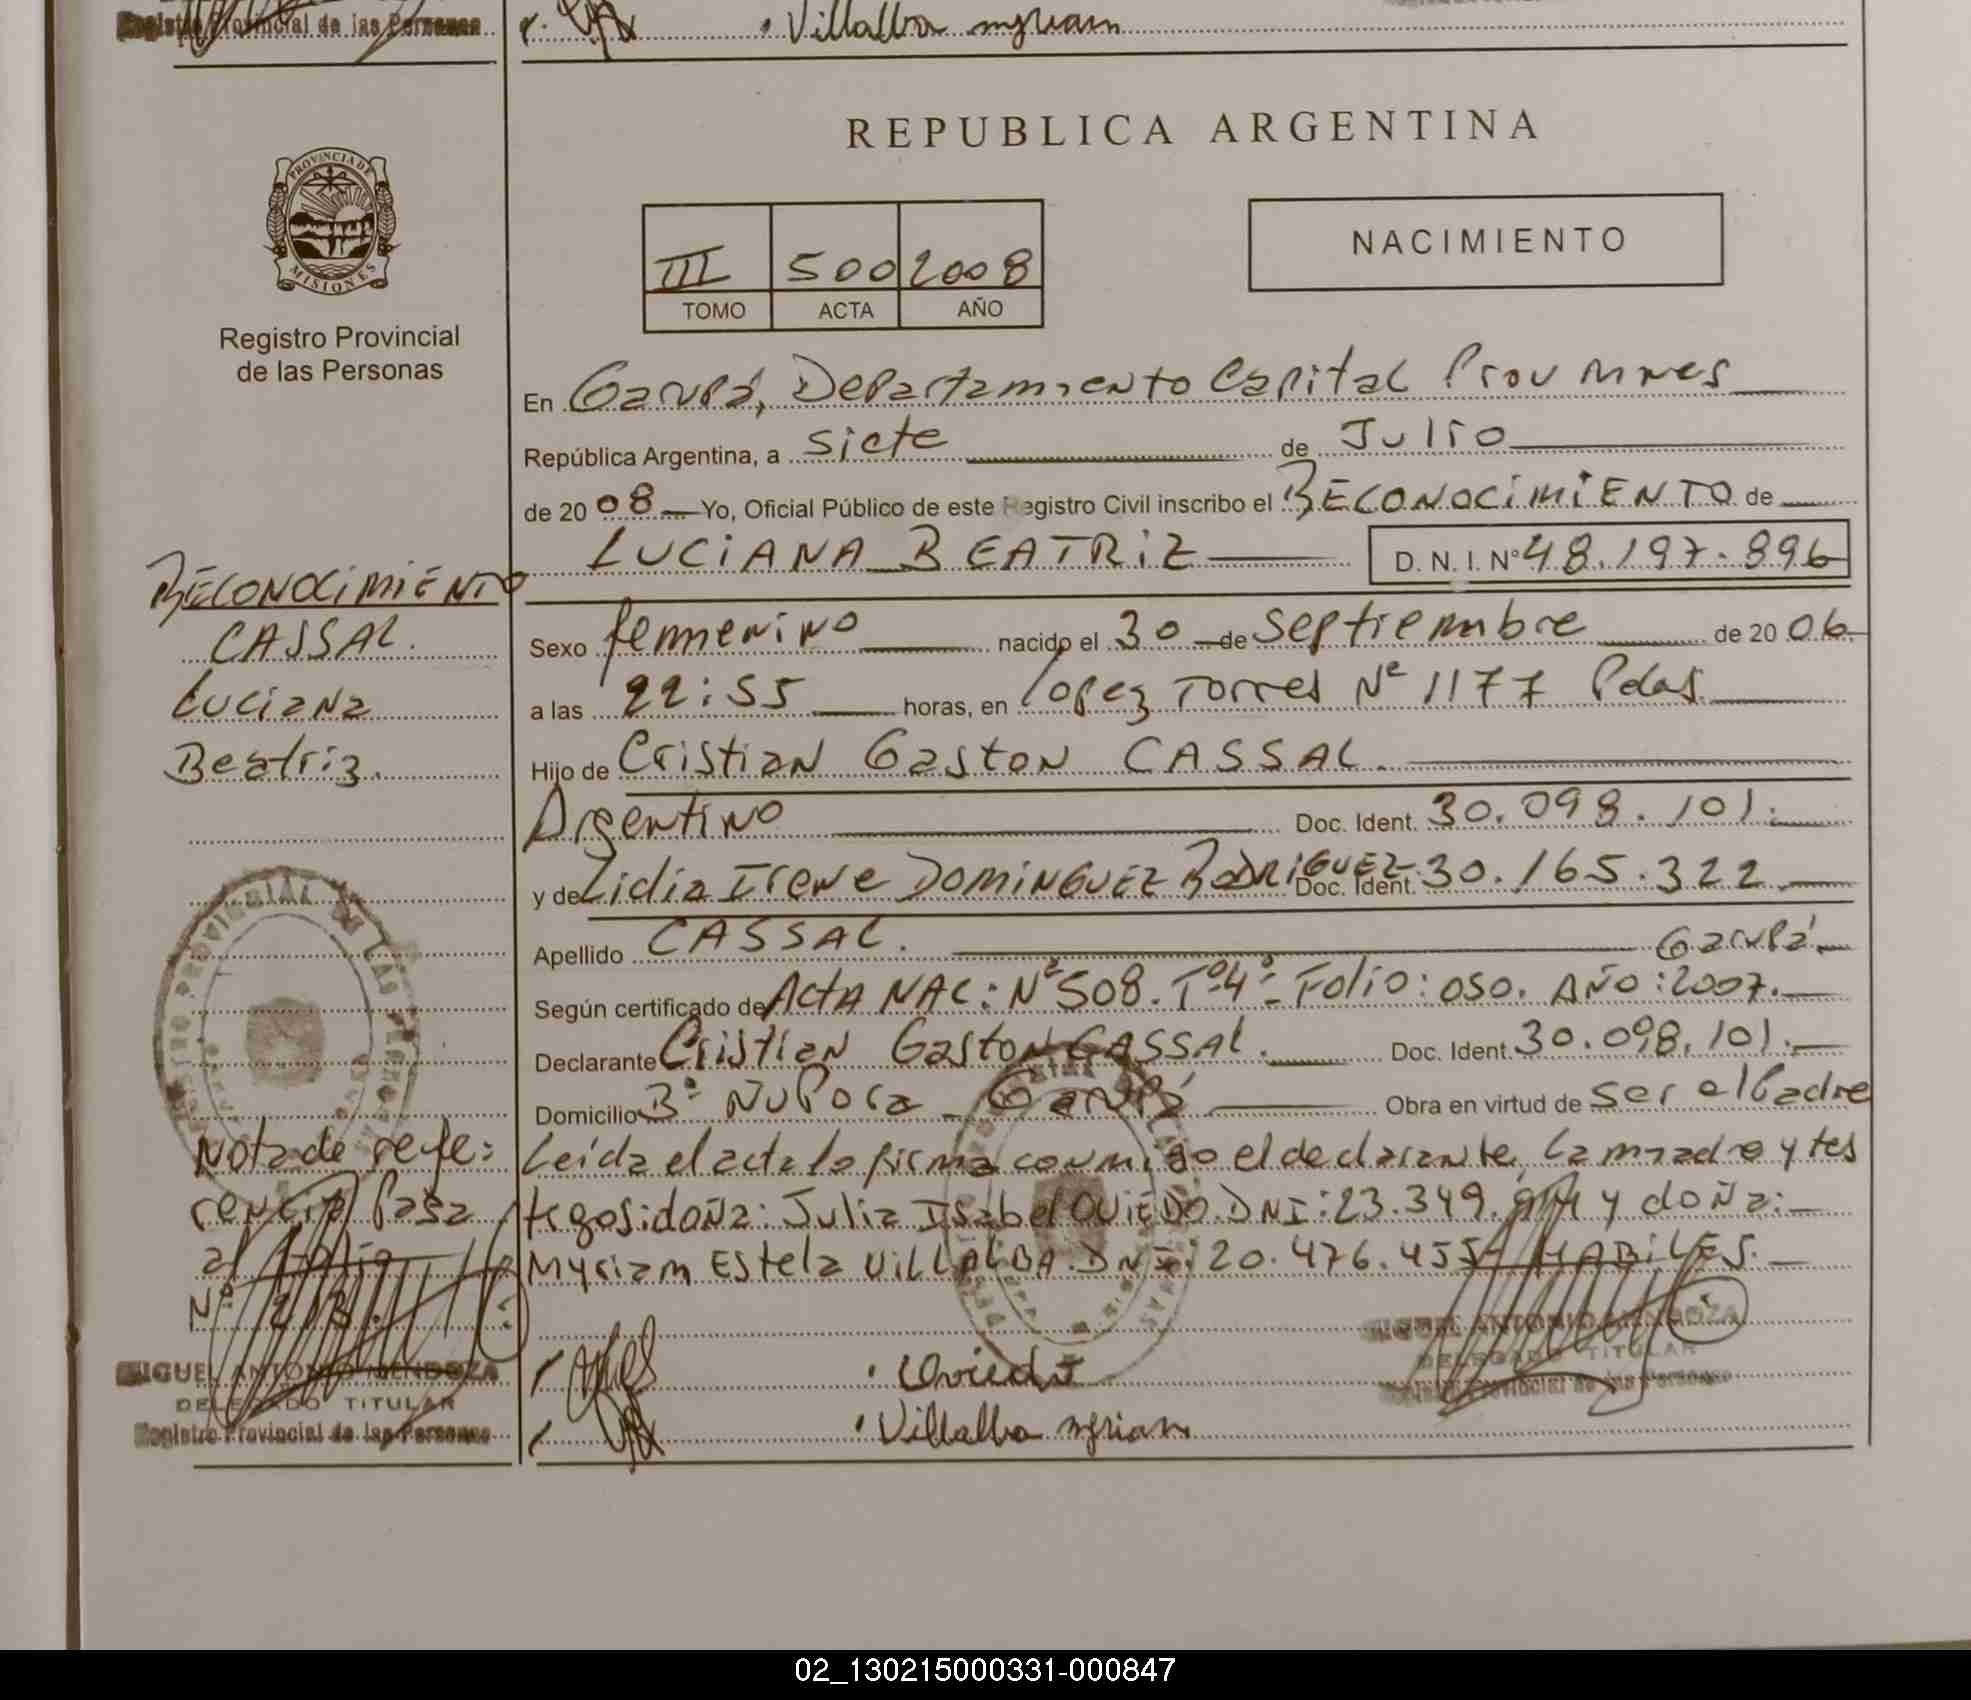 Registro Provincial de las Personas
Villalba myriam
REPUBLICA ARGENTINA
PROVINCIA DE MISIONES
Registro Provincial
de las Personas
III 500 2008
TOMO ACTA AÑO
NACIMIENTO
En Garupá, Departamiento Capital Prov Mnes
República Argentina, a siete de Julio
de 2008 Yo, Oficial Público de este Registro Civil inscribo el RECONOCIMIENTO de
LUCIANA BEATRIZ D. N. I. Nº 48.197.896
RECONOCIMIENTO
CASSAL.
Luciana
Beatriz.
Sexo femenino nacido el 30 de septiembre de 2006
a las 22:55 horas, en Lopez Torres Nº 1177 Pdas.
Hijo de Cristian Gaston CASSAL.
Argentino Doc. Ident. 30.098.101.
y de Lidia Irene DOMINGUEZ RODRIGUEZ Doc. Ident. 30.165.322
Apellido CASSAL. Garupá
Según certificado de Acta NAC: Nº 508. Tº 4º Folio: 050. AÑO: 2007.
Declarante Cristian Gaston CASSAL. Doc. Ident. 30.098.101.
Domicilio Bº Ñu Pora Garupá Obra en virtud de ser el Padre
Leída el acta la firma conmigo el declarante, la madre y tes
tigos: doña: Julia Isabel OVIEDO. DNI: 23.349. y doña:
Myriam Estela VILLALBA. DNI: 20.476.455 HABILES.
Nota de refe:
rencia Pasa
al Folio
Nº 213.
MIGUEL ANTONIO MENDOZA
DELEGADO TITULAR
Registro Provincial de las Personas
Oviedo
Villalba myriam
MIGUEL ANTONIO MENDOZA
DELEGADO TITULAR
Registro Provincial de las Personas
02_130215000331-000847